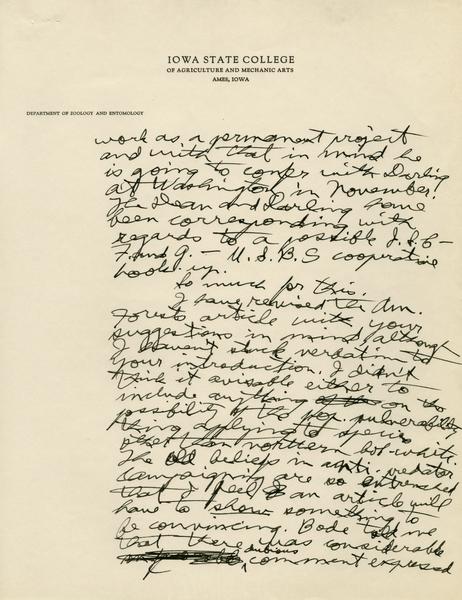 IOWA STATE COLLEGE
OF AGRICULTURE AND MECHANIC ARTS
AMES, IOWA
DEPARTMENT OF ZOOLOGY AND ENTOMOLOGY
work as a permanent project
and with that in mind he
is going to confer with Darling
at Washington in November.
The Dean and Darling have
been corresponding with
regards to a possible I.S.C.-
F. and G. - U.S.B.S cooperative
hook up.
So much for this.
I have revised the Am.
Forests article with your
suggestions in mind although
I haven't stuck verbatim to
your introduction. I didn't
think it avisable either to
include anything on the
possibility of the pop. vulnerability
thing applying to species
other than northern bob-white.
The old beliefs in anti-predator
campaigning are so entrenched
that I feel an article will
have to show something to
be convincing. Bode told me
that there was considerable
dubious comment expressed